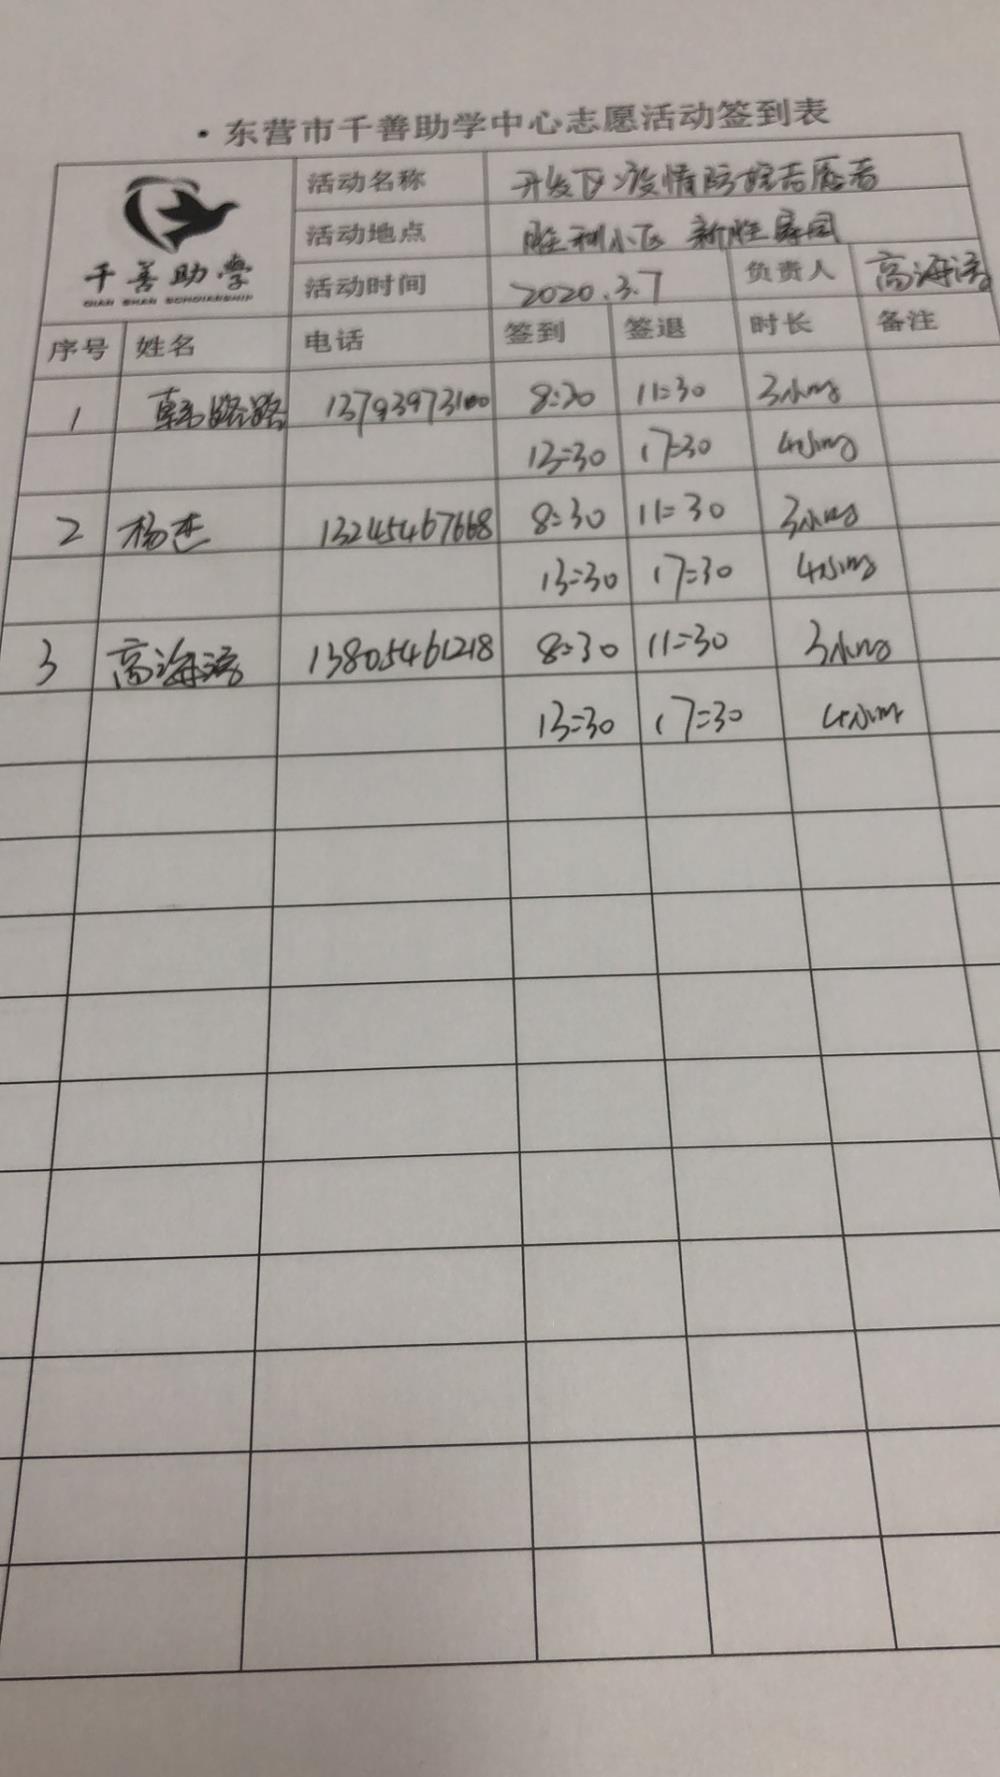 ·东营市千善助学中心志愿活动签到表
千善助学
QIAN SHAN SCHOLARSHIP
活动名称 开发区疫情防控志愿者
活动地点 胜利小区 新胜家园
活动时间 2020.3.7 负责人 高海涛
序号 姓名 电话 签到 签退 时长 备注
1 韩路路 13793973100 8:30 11:30 3小时
13:30 17:30 4小时
2 杨杰 13245467668 8:30 11:30 3小时
13:30 17:30 4小时
3 高海涛 13805461218 8:30 11:30 3小时
13:30 17:30 4小时